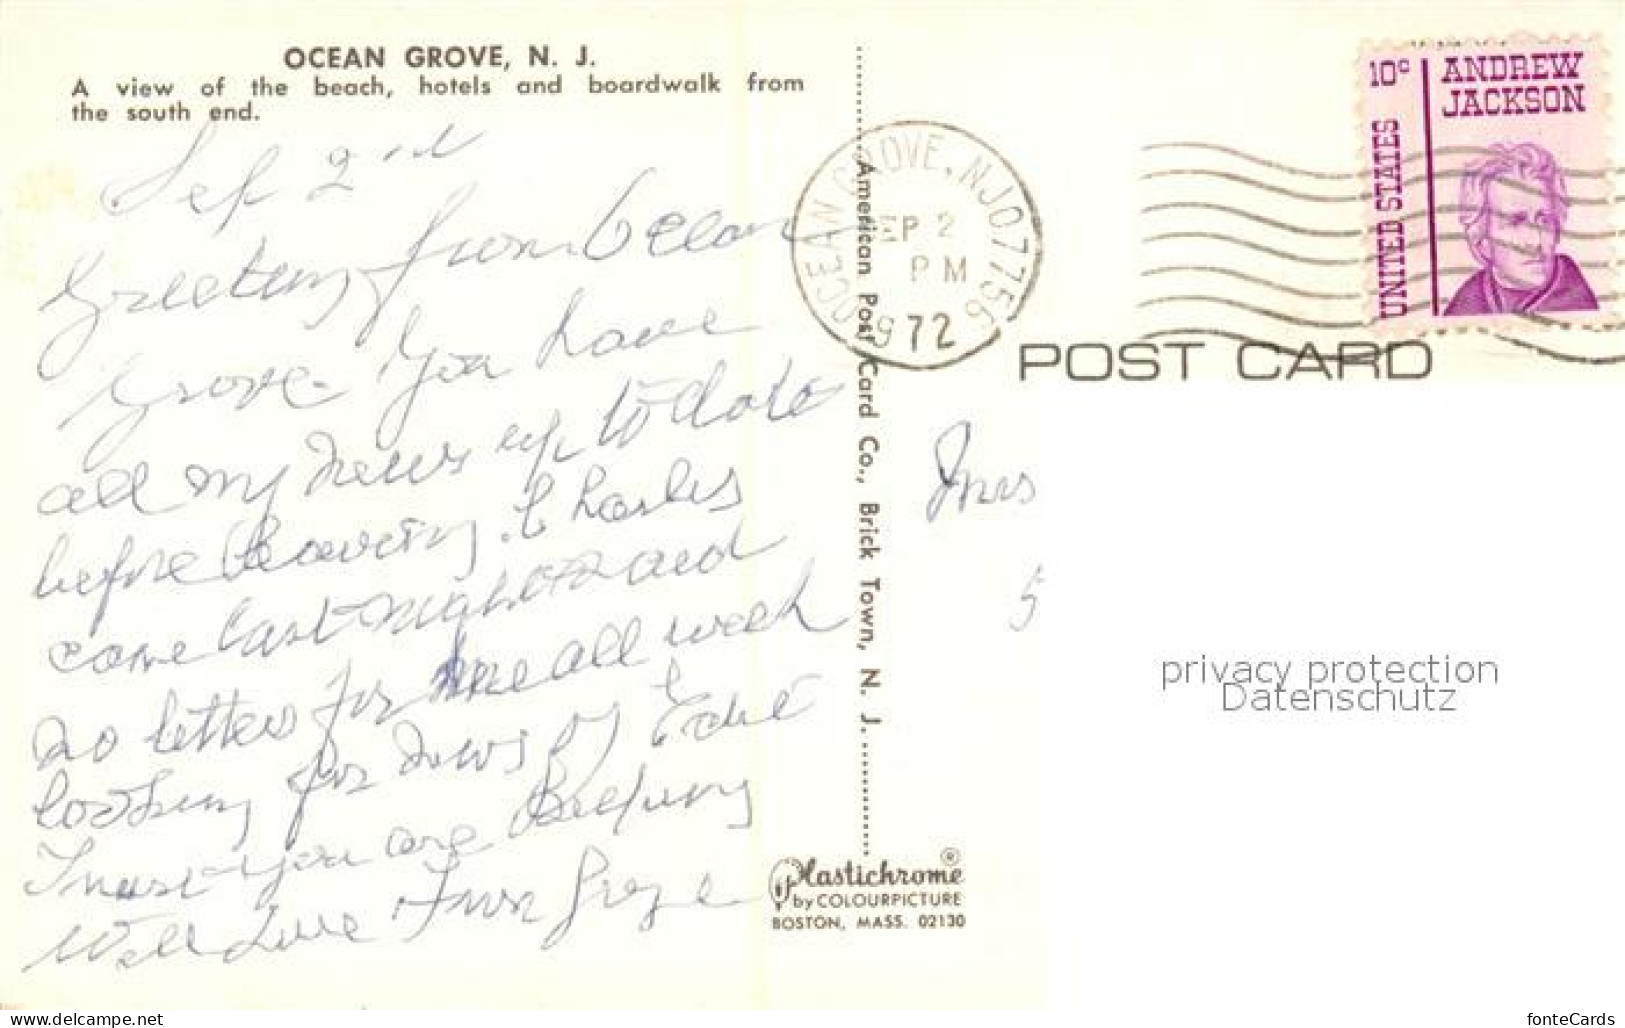 OCEAN GROVE, N. J.
A view of the beach, hotels and boardwalk from
the south end.
Sep 2nd
Greetings from Ocean
Grove You have
all my news up to date
before leaving. Charles
came last night and
no letter for me all week
looking for news of Edie
Trust you are keeping
Well Love from
American Post Card Co., Brick Town, N. J.
OCEAN GROVE, NJ 07756
SEP 2
PM
1972
10c
ANDREW
JACKSON
UNITED STATES
POST CARD
Mrs
5
privacy protection
Datenschutz
Plastichrome ®
by COLOURPICTURE
BOSTON, MASS. 02130
www.delcampe.net
fonteCards